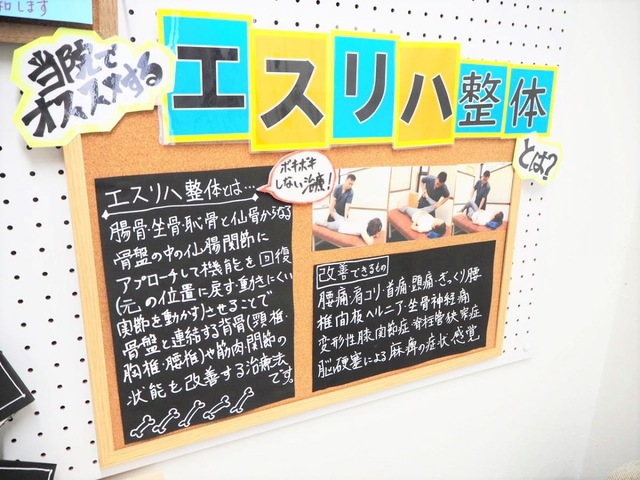 和します
当院で
オススメする
エスリハ整体
とは?
エスリハ整体とは…
ボキボキ
しない治療!
腸骨・坐骨・恥骨と仙骨からなる
骨盤の中の仙腸関節に
アプローチして機能を回復
(元の位置に戻す・動きにくい
関節を動かす)させることで
骨盤と連結する背骨(頸椎・
胸椎・腰椎)や筋肉・関節の
状態も改善する治療法
です。
改善できるもの
腰痛・肩コリ・首痛・頭痛・ぎっくり腰
椎間板ヘルニア・坐骨神経痛
変形性膝関節症・脊柱管狭窄症
脳梗塞による麻痺の症状・感覚